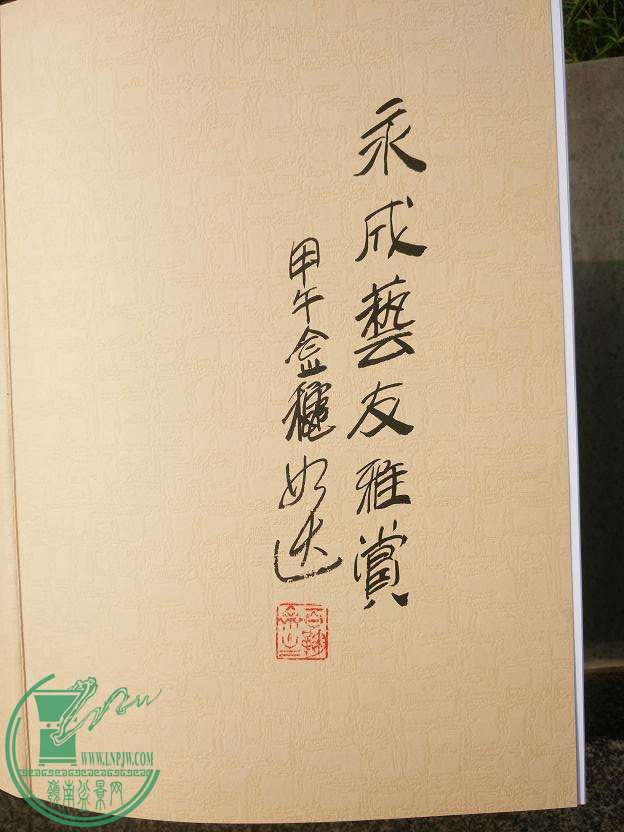 永成藝友雅賞
甲午金龝
WWW.LNPJW.COM
嶺南盆景网